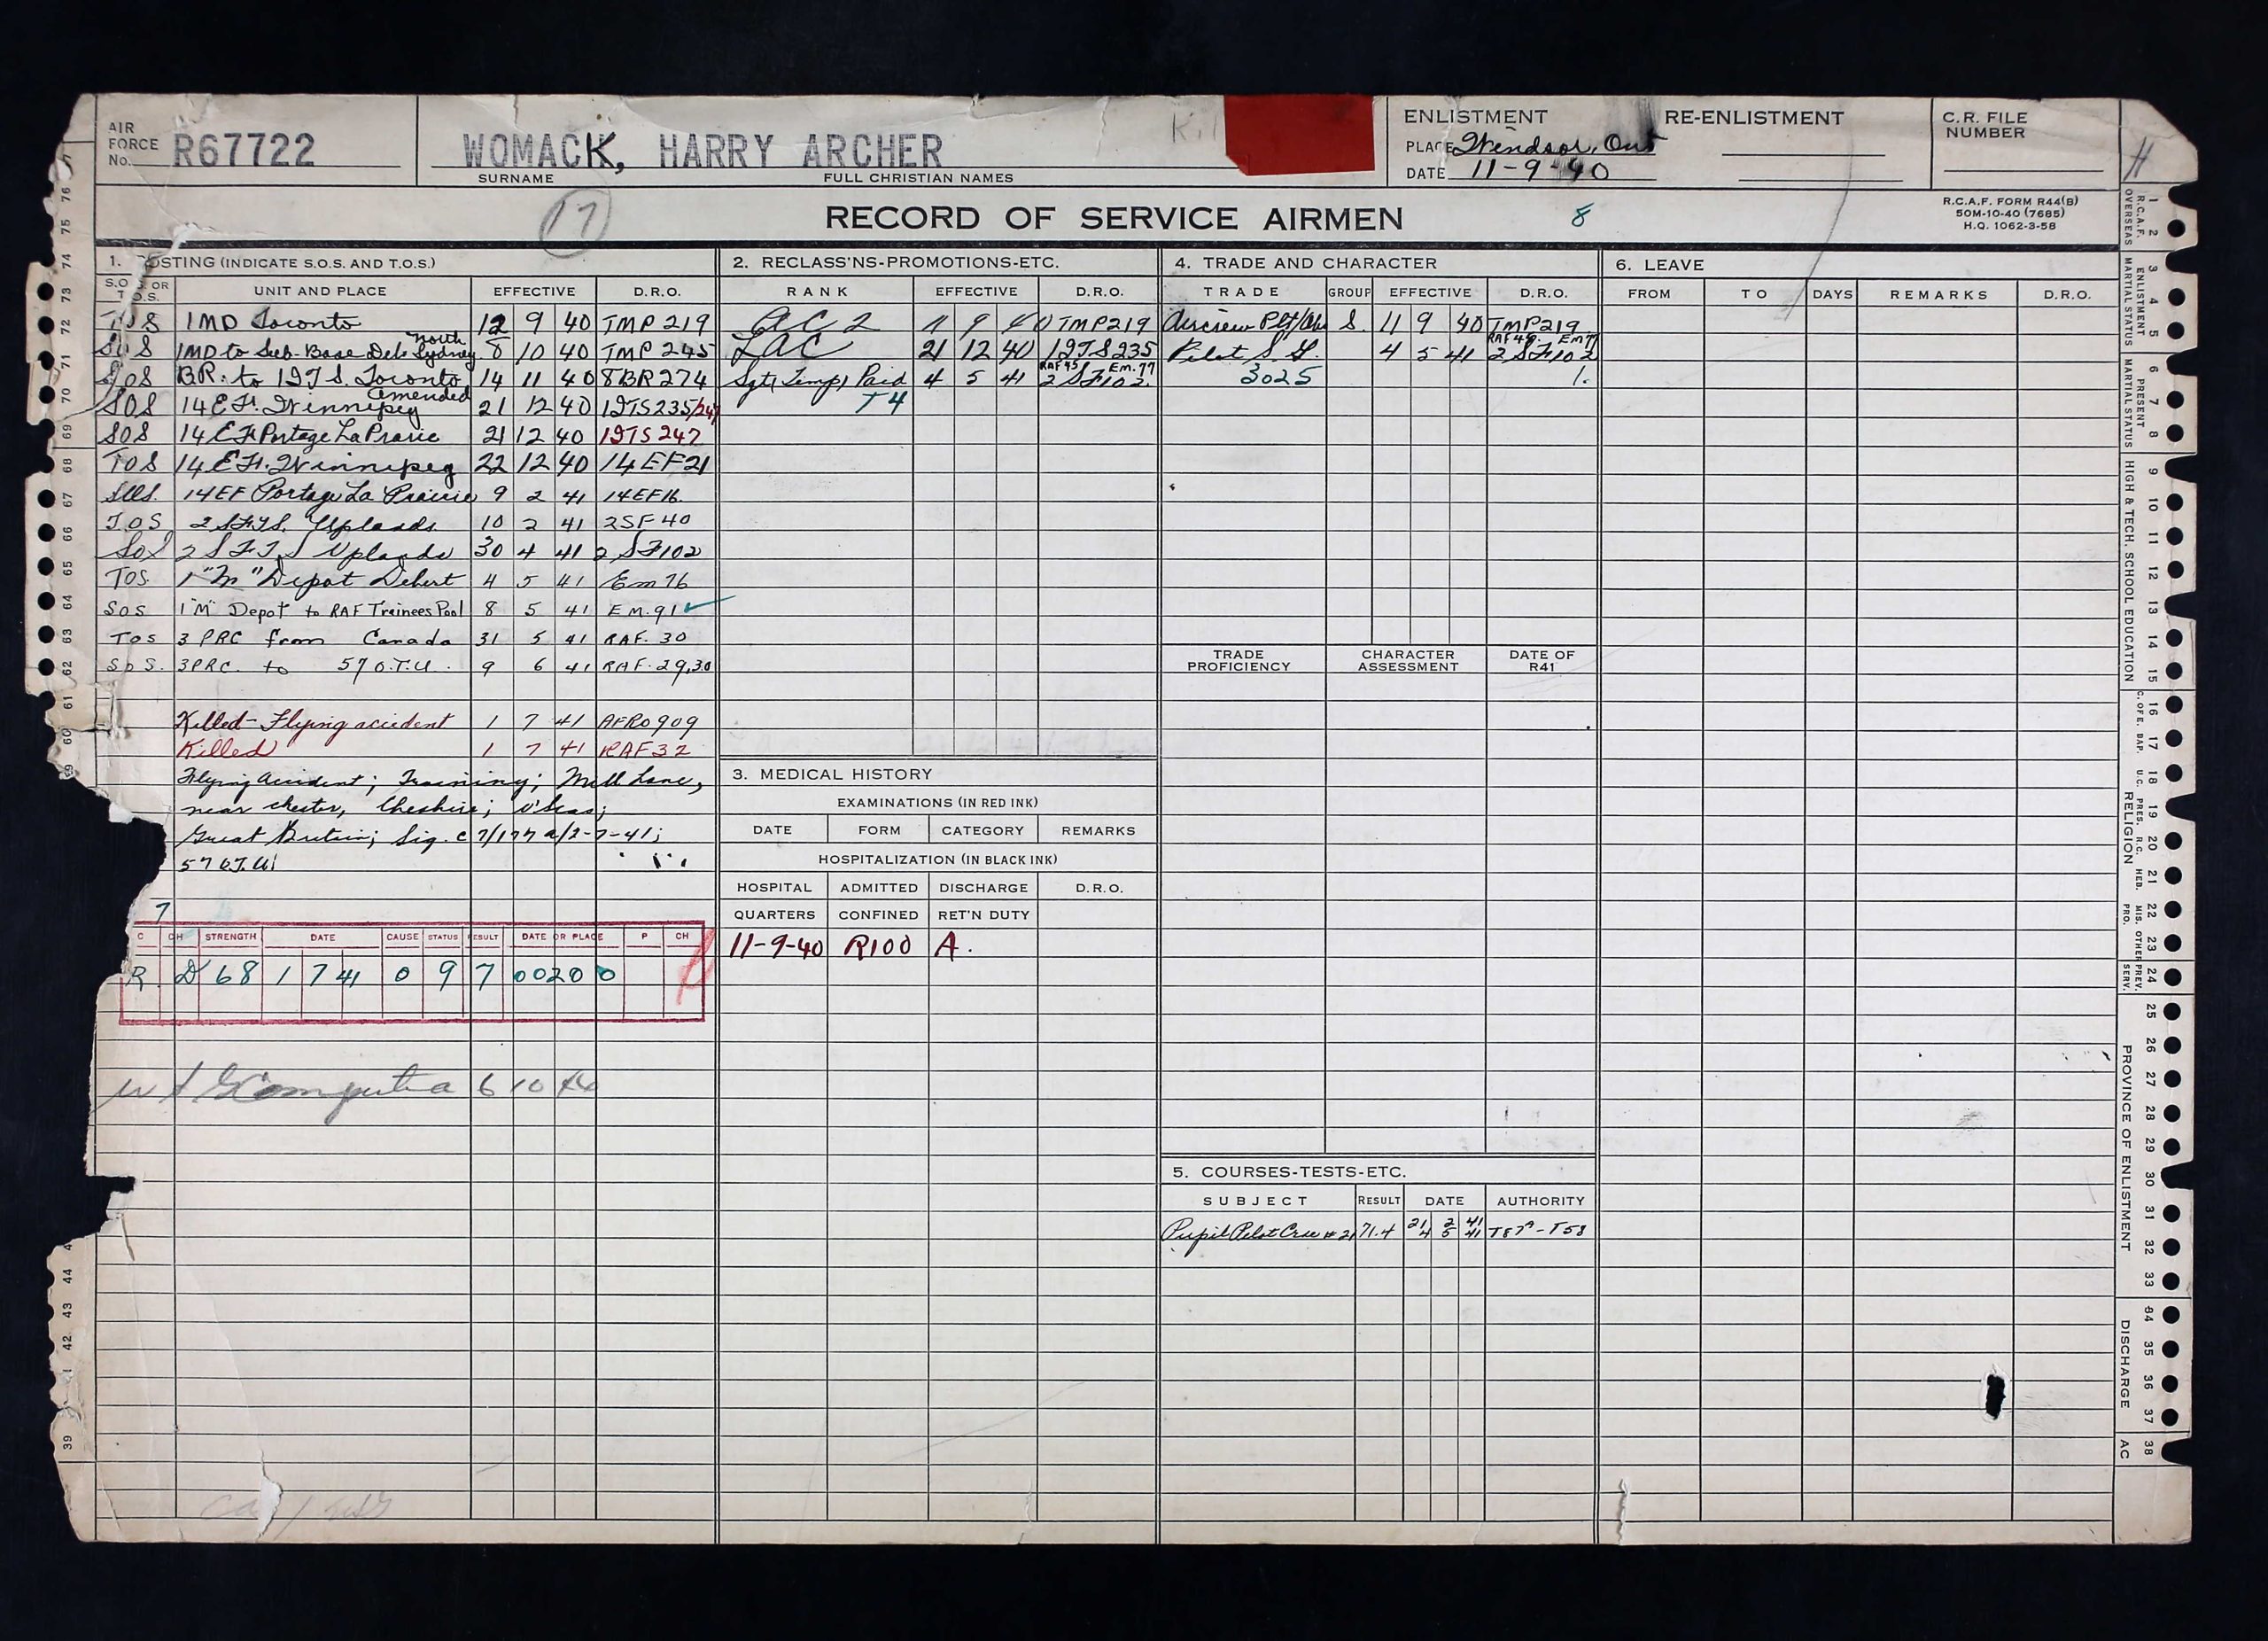 AIR FORCE No. R67722
WOMACK, HARRY ARCHER
SURNAME FULL CHRISTIAN NAMES
Kil
ENLISTMENT RE-ENLISTMENT
PLACE Windsor, Ont
DATE 11-9-40
C.R. FILE NUMBER
H
17
RECORD OF SERVICE AIRMEN
8
R.C.A.F. FORM R44(B)
50M-10-40 (7685)
H.Q. 1062-3-58
1. POSTING (INDICATE S.O.S. AND T.O.S.)
S.O.S. OR T.O.S. UNIT AND PLACE EFFECTIVE D.R.O.
TOS 1MD Toronto 12 9 40 TMP 219
SOS 1MD to Sub-Base Det. North Sydney 8 10 40 TMP 245
SOS BR. to 1ITS. Toronto 14 11 40 8BR274
amended
SOS 14 EF. Winnipeg 21 12 40 1ITS235/247
SOS 14 EF Portage La Prarie 21 12 40 1ITS 247
TOS 14 EF. Winnipeg 22 12 40 14EF21
SOS. 14EF Portage La Prairie 9 2 41 14EF16.
T.O.S. 2 SFTS. Uplands 10 2 41 2SF 40
SOS 2 SFTS Uplands 30 4 41 2 SF102
TOS. 1 "M" Depot Debert 4 5 41 Em 76
SOS 1 "M" Depot to RAF Trainees Pool 8 5 41 EM.91
TOS 3 PRC from Canada 31 5 41 RAF. 30
SOS. 3PRC. to 57 O.T.U. 9 6 41 RAF.29,30
Killed - Flying accident 1 7 41 AFRO909
Killed 1 7 41 RAF32
Flying Accident; Training; Mill Lane,
near Chester, Cheshire; O'Seas;
Great Britain; Sig. C7/177 a/2-7-41;
57 O.T.U.
7
C CH STRENGTH DATE CAUSE STATUS RESULT DATE OR PLACE P CH
R D 68 1 7 41 0 9 7 00200
6 10
2. RECLASS'NS-PROMOTIONS-ETC.
RANK EFFECTIVE D.R.O.
AC2 11 9 40 TMP219
LAC 21 12 40 1ITS235
Sgt (Temp) Paid 4 5 41 RAF45 Em.77 2 SF102.
T4
3. MEDICAL HISTORY
EXAMINATIONS (IN RED INK)
DATE FORM CATEGORY REMARKS
HOSPITALIZATION (IN BLACK INK)
HOSPITAL ADMITTED DISCHARGE D.R.O.
QUARTERS CONFINED RET'N DUTY
11-9-40 R100 A.
4. TRADE AND CHARACTER
TRADE GROUP EFFECTIVE D.R.O.
Aircrew Plt/Obs S. 11 9 40 TMP219
Pilot S.G. 4 5 41 RAF45. Em77 2 SF102
3025 1.
TRADE PROFICIENCY CHARACTER ASSESSMENT DATE OF R41
5. COURSES-TESTS-ETC.
SUBJECT RESULT DATE AUTHORITY
Pupil Pilot Crse #21 71.4 21/4 2/5 41/41 T87A-T58
6. LEAVE
FROM TO DAYS REMARKS D.R.O.
R.C.A.F. OVERSEAS 1 2
ENLISTMENT MARTIAL STATUS 3 4 5
PRESENT MARTIAL STATUS 6 7 8
HIGH & TECH. SCHOOL EDUCATION 9 10 11 12 13 14 15
RELIGION C. OF E. BAP. U.C. PRES. R.C. HEB. MIS. PRO. OTHER 16 17 18 19 20 21 22 23
PREV. SERV. 24
PROVINCE OF ENLISTMENT 25 26 27 28 29 30 31 32 33
DISCHARGE 34 35 36 37
AC 38
76 75 74 73 72 71 70 69 68 67 66 65 64 63 62 61 60 59
44 43 42 41 39